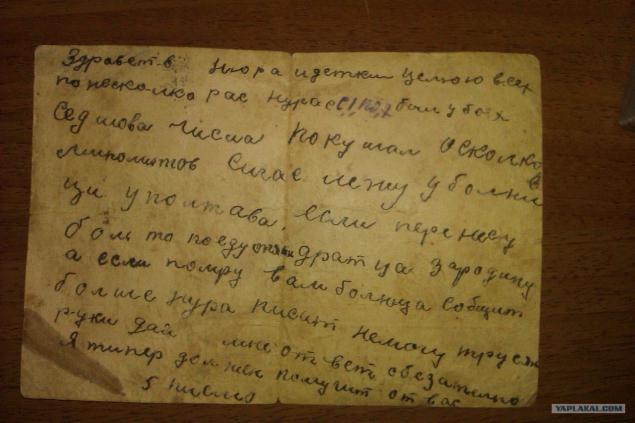 Здравст-в Нюра и детки целюю всех
по несколко рас нурас был у боех
Седмова числа покушал осколков
Минамитов Сичас лежу у болни
ци уполтава. если перенесу
боль то поеду дратца зародину
а если помру вам болница собщит
болше нура писат немогу трусят
руки дай мне ответ обезателно
я типер должен получит от вас
5 число
YAPLAKAL.COM